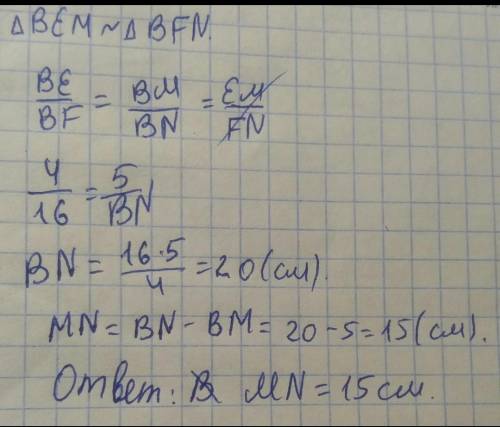 △BEM ~ △BFN.
BE/BF = BM/BN = EM/FN
4/16 = 5/BN
BN = 16·5/4 = 20(см).
MN = BN - BM = 20 - 5 = 15(см).
Ответ: MN = 15см.